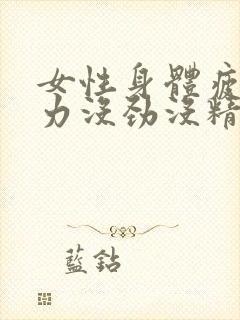 女性身體疲
力沒勁沒精
藍鈷